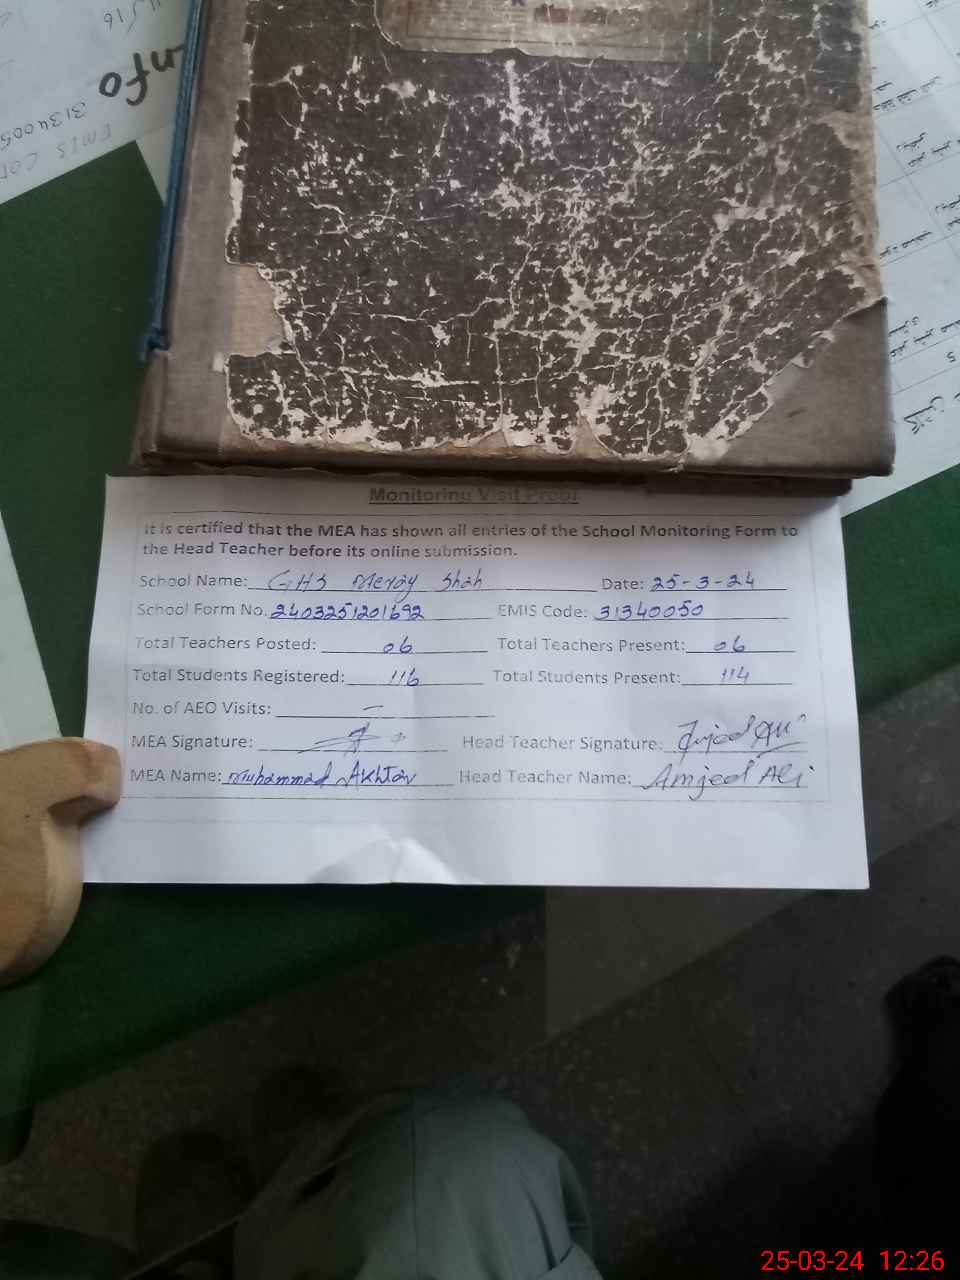 info
Monitoring Visit Proof
It is certified that the MEA has shown all entries of the School Monitoring Form to
the Head Teacher before its online submission.
School Name: GHS Meray Shah Date: 25-3-24
School Form No. 2403251201692 EMIS Code: 31340050
Total Teachers Posted: 06 Total Teachers Present: 06
Total Students Registered: 116 Total Students Present: 114
No. of AEO Visits: —
MEA Signature: Head Teacher Signature: Amjed Ali
MEA Name: Muhammad Akhtar Head Teacher Name: Amjed Ali
25-03-24 12:26